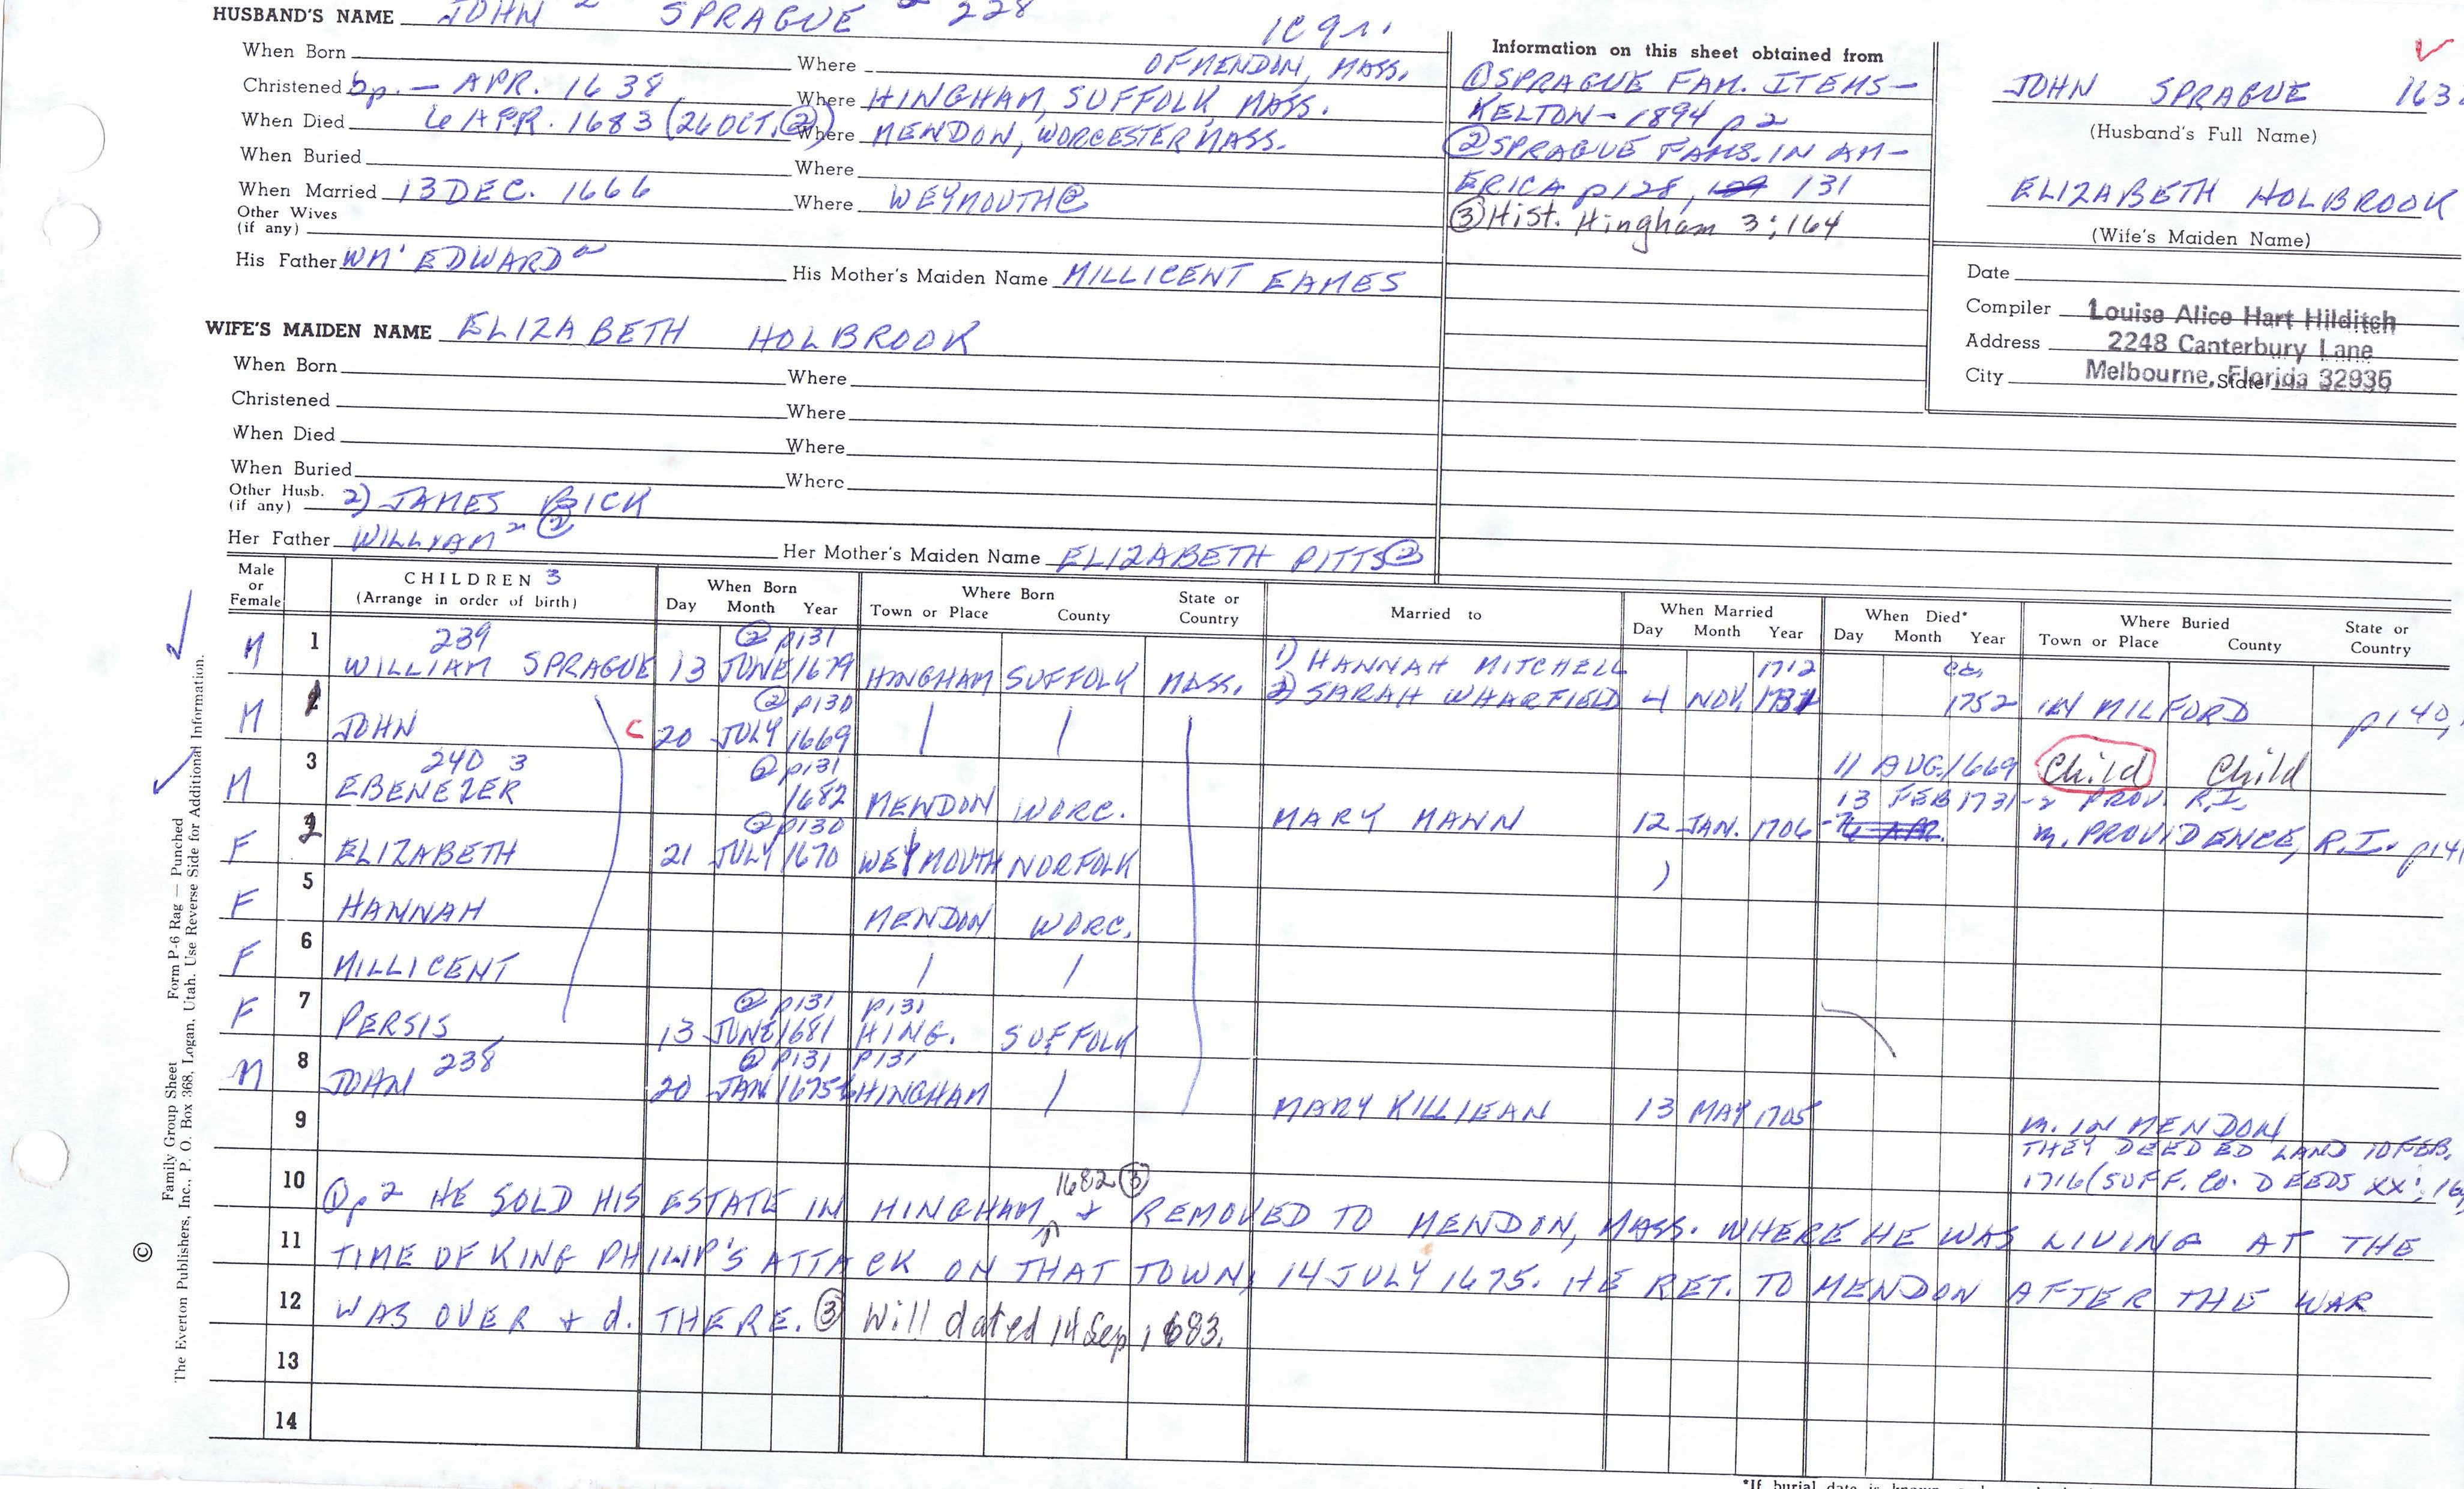 HUSBAND'S NAME JOHN 2 SPRAGUE 228
When Born Where OF MENDON, MASS.
Christened bp. — APR. 1638 Where HINGHAM, SUFFOLK MASS.
When Died 6 APR. 1683 (26 OCT. ②) Where MENDON, WORCESTER MASS.
When Buried Where
When Married 13 DEC. 1666 Where WEYMOUTH ②
Other Wives
(if any)
His Father WM' EDWARD His Mother's Maiden Name MILLICENT EAMES
Information on this sheet obtained from
① SPRAGUE FAM. ITEMS —
KELTON — 1894 p 2
② SPRAGUE FAMS. IN AM-
ERICA p 128, 129 131
③ Hist. Hingham 3:164
JOHN SPRAGUE 163
(Husband's Full Name)
ELIZABETH HOLBROOK
(Wife's Maiden Name)
Date
Compiler Louise Alice Hart Hilditch
Address 2248 Canterbury Lane
City Melbourne, Florida 32935 State
WIFE'S MAIDEN NAME ELIZABETH HOLBROOK
When Born Where
Christened Where
When Died Where
When Buried Where
Other Husb. 2) JAMES BICK
(if any)
Her Father WILLIAM ② Her Mother's Maiden Name ELIZABETH PITTS ②
Male or Female CHILDREN 3 (Arrange in order of birth) When Born Day Month Year Where Born Town or Place County State or Country Married to When Married Day Month Year When Died* Day Month Year Where Buried Town or Place County State or Country
239 ② p131 1) HANNAH MITCHELL 1712
M 1 WILLIAM SPRAGUE 13 JUNE 1679 HINGHAM SUFFOLK MASS. 2) SARAH WHARFIELD 4 NOV. 1731 1752 IN MILFORD p 140,
② p130
M 2 JOHN C 20 JULY 1669 11 AUG. 1669 Child Child
240 3 ② p131 13 FEB 1731-2 PROV. R.I.
M 3 EBENEZER 1682 MENDON WORC. MARY MANN 12 JAN. 1706-7 6 APR. m. PROVIDENCE, R.I. p 141
② p130
F 2 ELIZABETH 21 JULY 1670 WEYMOUTH NORFOLK
F 5 HANNAH MENDON WORC.
F 6 MILLICENT
② p131 p131
F 7 PERSIS 13 JUNE 1681 HING. SUFFOLK
238 ② p131 p131
M 8 JOHN 20 JAN 1675-6 HINGHAM MARY KILLIEAN 13 MAY 1705 m. IN MENDON
9 THEY DEEDED LAND 10 FEB.
1716 (SUFF. CO. DEEDS XX: 16
1682 ③
10 ① p 2 HE SOLD HIS ESTATE IN HINGHAM & REMOVED TO MENDON, MASS. WHERE HE WAS LIVING AT THE
11 TIME OF KING PHILIP'S ATTACK ON THAT TOWN, 14 JULY 1675. HE RET. TO MENDON AFTER THE WAR
12 WAS OVER & d. THERE. ③ Will dated 14 Sep 1683.
13
14
Family Group Sheet Form P-6 Rag — Punched
© The Everton Publishers, Inc., P. O. Box 368, Logan, Utah. Use Reverse Side for Additional Information.